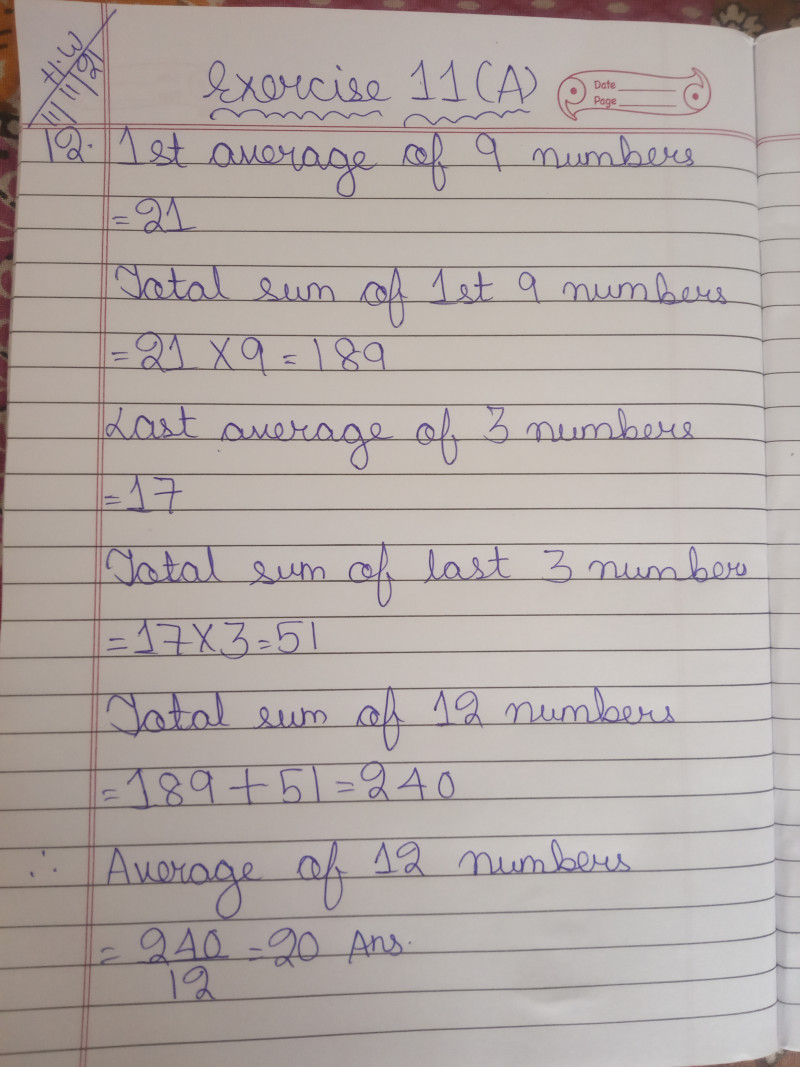 H.W
11/11/21
Exercise 11(A)
Date
Page
12. 1st average of 9 numbers
= 21
Total sum of 1st 9 numbers
= 21 X 9 = 189
Last average of 3 numbers
= 17
Total sum of last 3 number
= 17 X 3 = 51
Total sum of 12 numbers
= 189 + 51 = 240
∴ Average of 12 numbers
= 240/12 = 20 Ans.